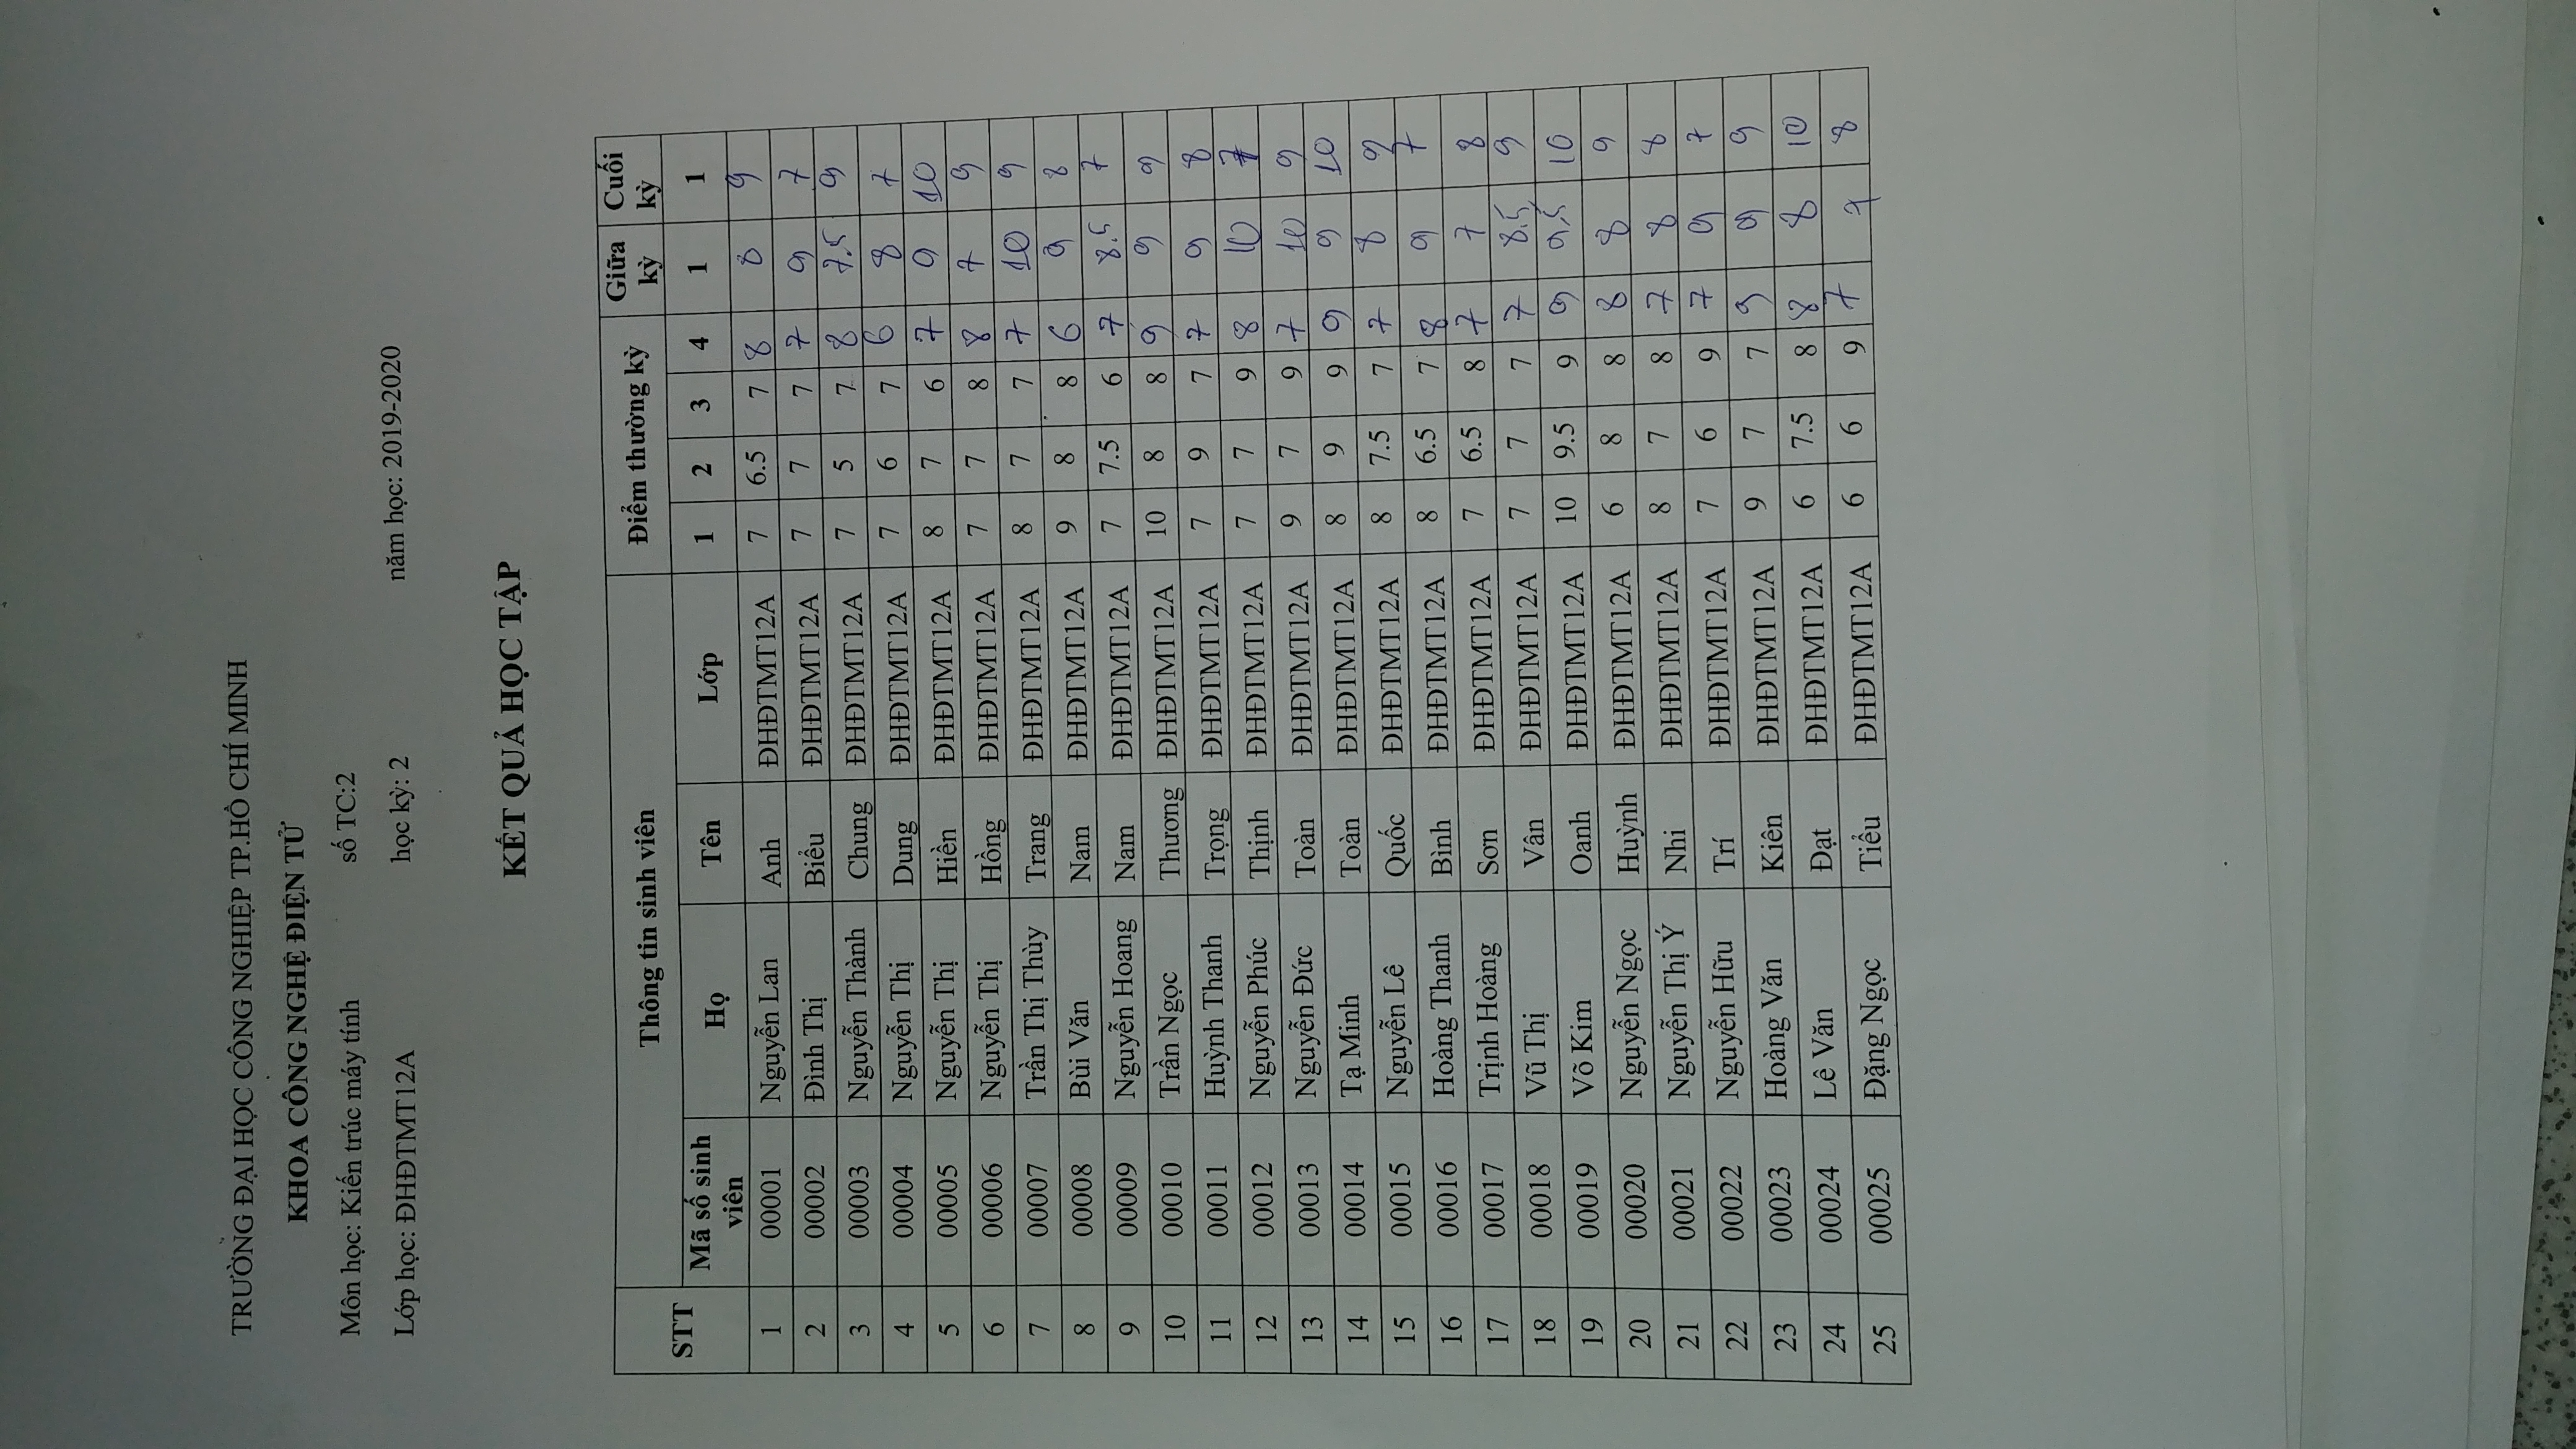 TRƯỜNG ĐẠI HỌC CÔNG NGHIỆP TP.HỒ CHÍ MINH
KHOA CÔNG NGHỆ ĐIỆN TỬ
Môn học: Kiến trúc máy tính số TC:2
Lớp học: ĐHĐTMT12A học kỳ: 2 năm học: 2019-2020
KẾT QUẢ HỌC TẬP
STT Thông tin sinh viên Điểm thường kỳ Giữa kỳ Cuối kỳ
Mã số sinh viên Họ Tên Lớp 1 2 3 4 1 1
1 00001 Nguyễn Lan Anh ĐHĐTMT12A 7 6.5 7 8 8 9
2 00002 Đình Thị Biểu ĐHĐTMT12A 7 7 7 7 9 7
3 00003 Nguyễn Thành Chung ĐHĐTMT12A 7 5 7 8 7.5 9
4 00004 Nguyễn Thị Dung ĐHĐTMT12A 7 6 7 6 8 7
5 00005 Nguyễn Thị Hiền ĐHĐTMT12A 8 7 6 7 9 10
6 00006 Nguyễn Thị Hồng ĐHĐTMT12A 7 7 8 8 7 9
7 00007 Trần Thị Thùy Trang ĐHĐTMT12A 8 7 7 7 10 9
8 00008 Bùi Văn Nam ĐHĐTMT12A 9 8 8 6 9 8
9 00009 Nguyễn Hoang Nam ĐHĐTMT12A 7 7.5 6 7 8.5 7
10 00010 Trần Ngọc Thương ĐHĐTMT12A 10 8 8 9 9 9
11 00011 Huỳnh Thanh Trọng ĐHĐTMT12A 7 9 7 7 9 8
12 00012 Nguyễn Phúc Thịnh ĐHĐTMT12A 7 7 9 8 10 7
13 00013 Nguyễn Đức Toàn ĐHĐTMT12A 9 7 9 7 10 9
14 00014 Tạ Minh Toàn ĐHĐTMT12A 8 9 9 9 9 10
15 00015 Nguyễn Lê Quốc ĐHĐTMT12A 8 7.5 7 7 8 9
16 00016 Hoàng Thanh Bình ĐHĐTMT12A 8 6.5 7 8 9 7
17 00017 Trịnh Hoàng Sơn ĐHĐTMT12A 7 6.5 8 7 7 8
18 00018 Vũ Thị Vân ĐHĐTMT12A 7 7 7 7 8.5 9
19 00019 Võ Kim Oanh ĐHĐTMT12A 10 9.5 9 9 9.5 10
20 00020 Nguyễn Ngọc Huỳnh ĐHĐTMT12A 6 8 8 8 8 9
21 00021 Nguyễn Thị Ý Nhi ĐHĐTMT12A 8 7 8 7 8 8
22 00022 Nguyễn Hữu Trí ĐHĐTMT12A 7 6 9 7 9 7
23 00023 Hoàng Văn Kiên ĐHĐTMT12A 9 7 7 9 9 9
24 00024 Lê Văn Đạt ĐHĐTMT12A 6 7.5 8 8 8 10
25 00025 Đặng Ngọc Tiểu ĐHĐTMT12A 6 6 9 7 7 8